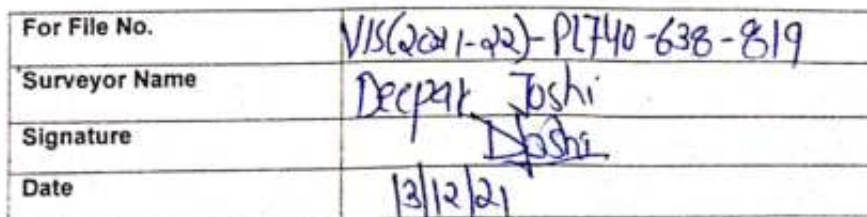 For File No. VIS(2021-22)-PL740-638-819
Surveyor Name Deepak Joshi
Signature DJoshi
Date 13/12/21